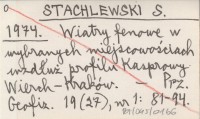 STACHLEWSKI S.
1974. Wiatry fenowe w
wybranych miejscowościach
wzdłuż profilu Kasprowy
Wierch-Kraków. Prz.
Geofiz. 19 (27), nr 1: 81-94.